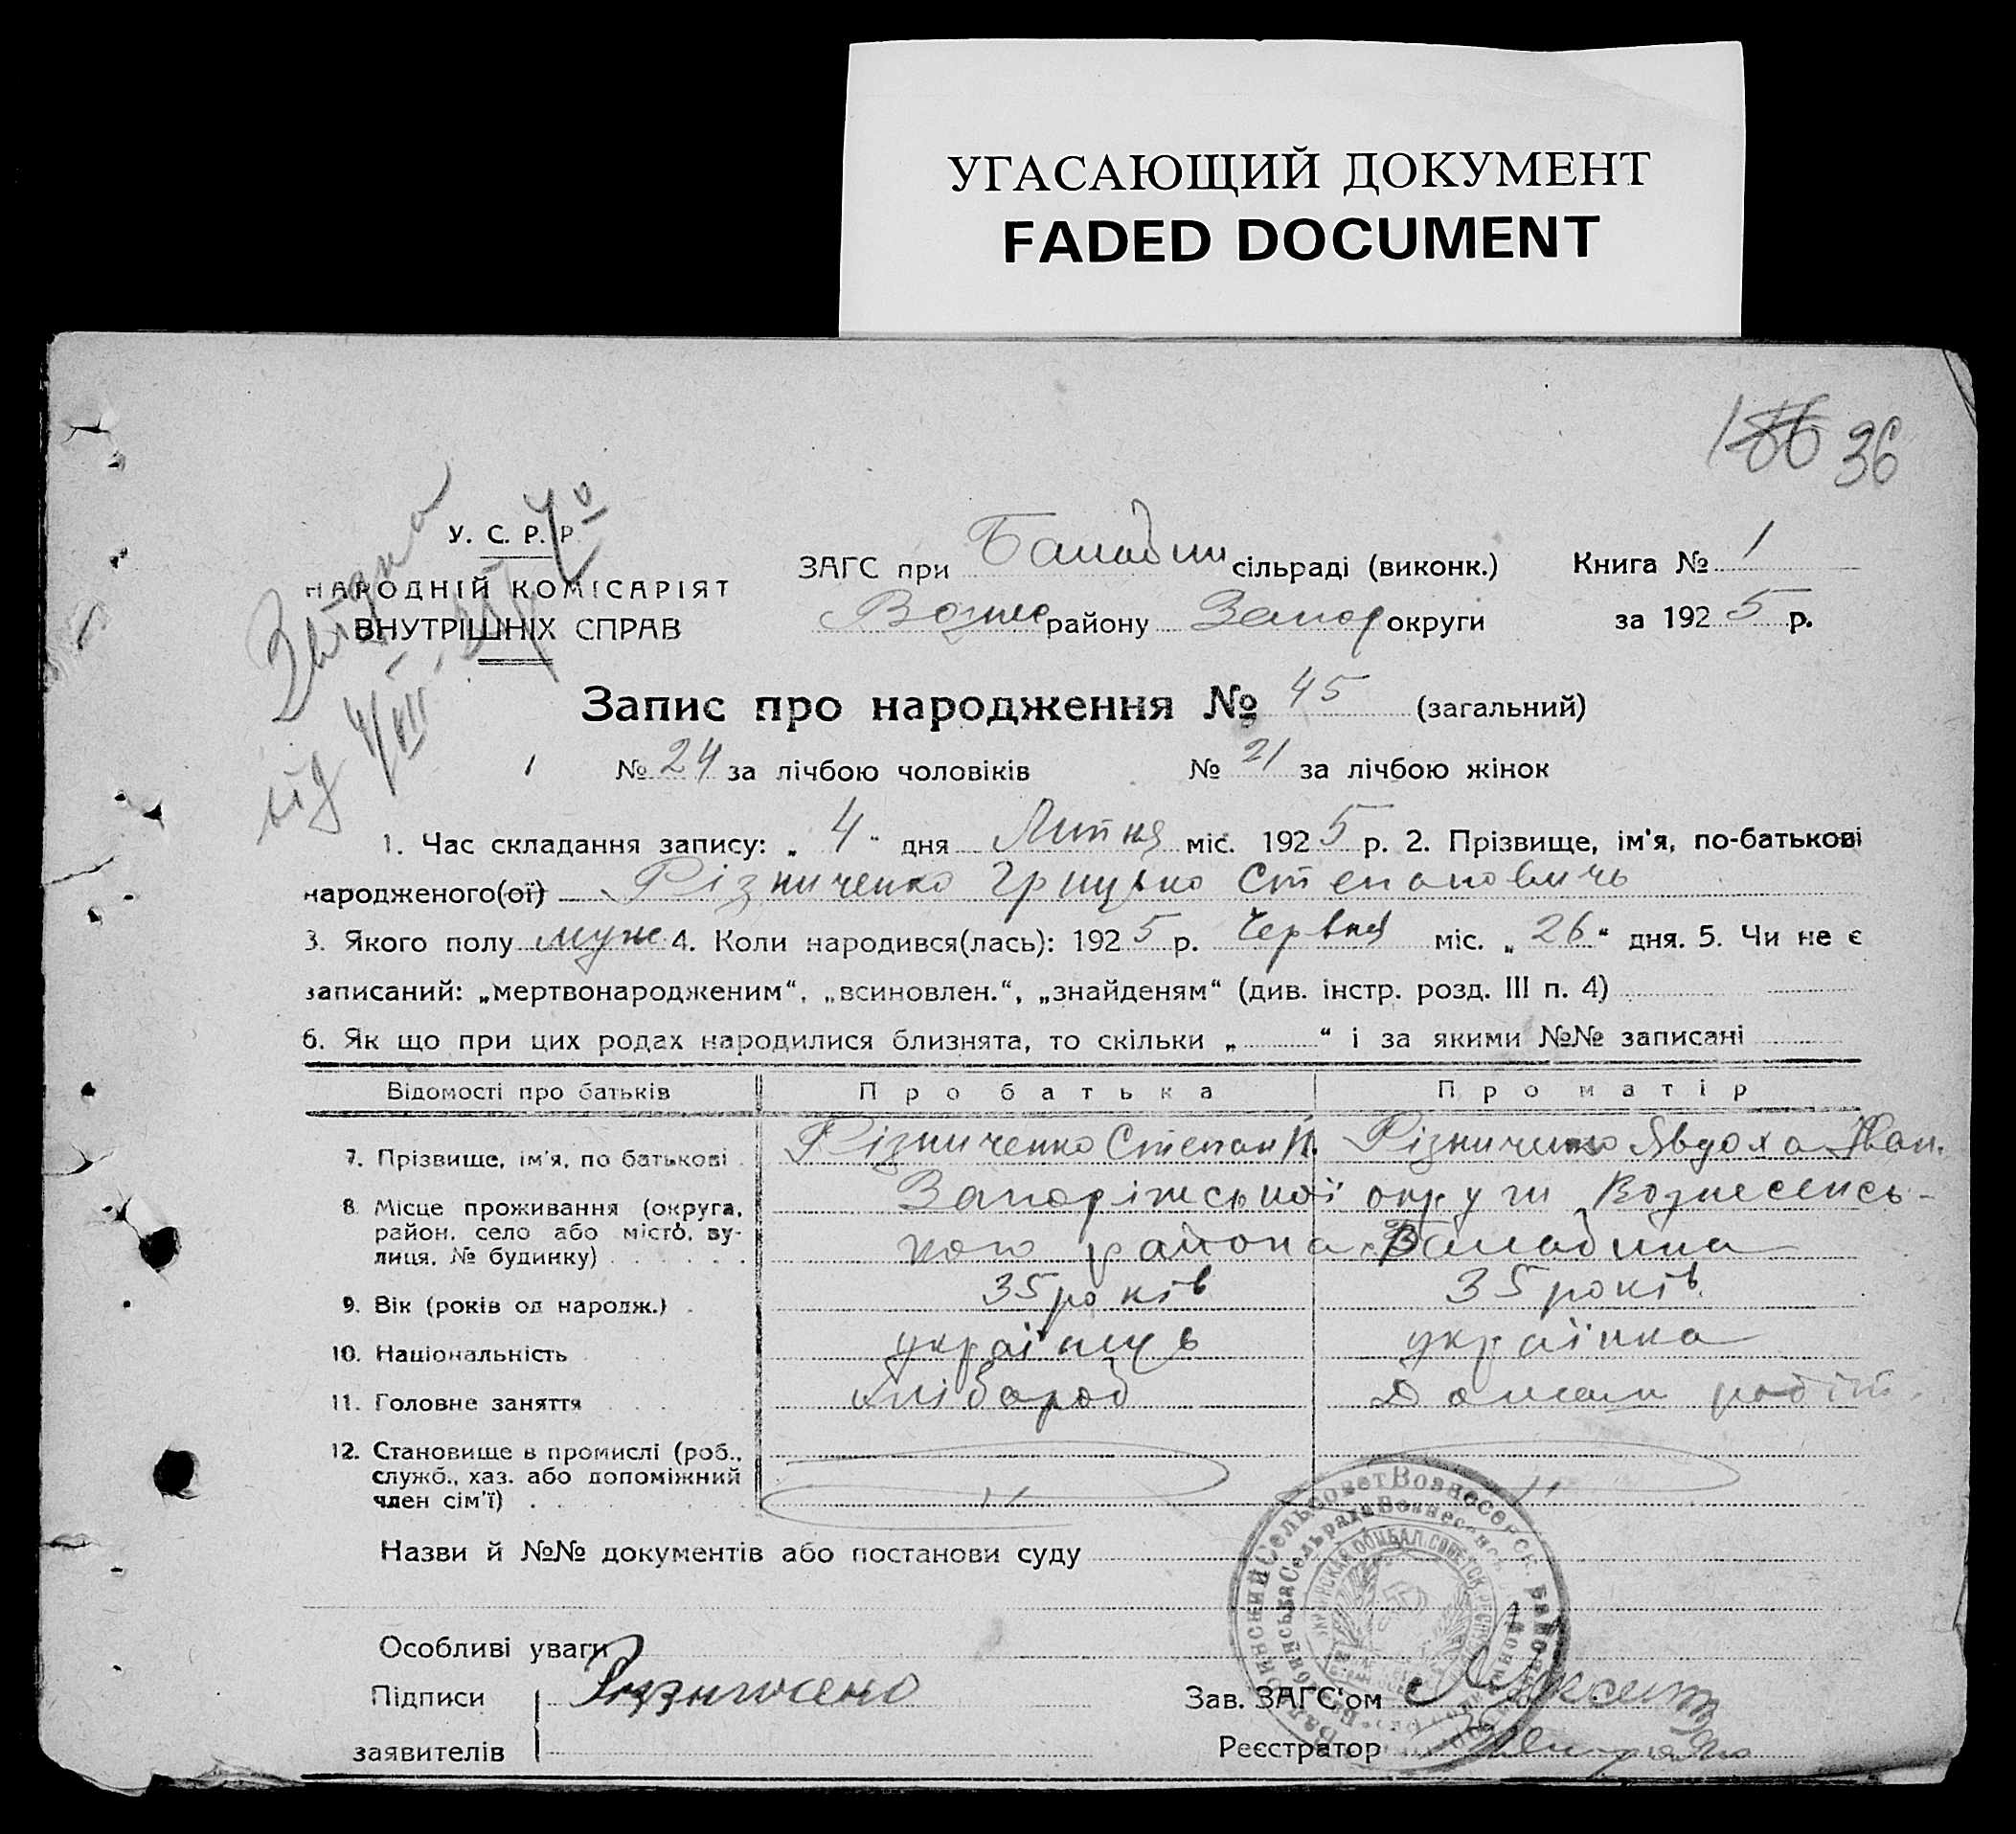 УГАСАЮЩИЙ ДОКУМЕНТ
FADED DOCUMENT
186 36
У. С. Р. Р.
НАРОДНІЙ КОМІСАРІЯТ
ВНУТРІШНІХ СПРАВ
ЗАГС при Балабин сільраді (виконк.) Книга № 1
Возне району Запор округи за 1925 р.
Запис про народження № 45 (загальний)
№ 24 за лічбою чоловіків № 21 за лічбою жінок
від 4/VII
1. Час складання запису: „ 4 " дня Липня міс. 1925 р. 2. Прізвище, ім'я, по-батькові
народженого(ої) Різниченко Грицько Степановичь
3. Якого полу муж 4. Коли народився(лась): 1925 р. Червня міс. „ 26 " дня. 5. Чи не є
записаний: „мертвонародженим", „всиновлен.", „знайденям" (див. інстр. розд. III п. 4)
6. Як що при цих родах народилися близнята, то скільки „ " і за якими №№ записані
Відомості про батьків Про батька Про матір
7. Прізвище, ім'я, по батькові Різниченко Степан Й. Різниченко Явдоха Іван.
8. Місце проживання (округа, Запоріжської округи Вознесенсь-
район, село або місто, ву-
лиця, № будинку) кого района Балабина
9. Вік (років од народж.) 35 років 35 років
10. Національність українць українка
11. Головне заняття хлібороб Домаш робіт.
12. Становище в промислі (роб.,
служб., хаз. або допоміжний
член сім'ї) " "
Назви й №№ документів або постанови суду
Особливі уваги
Підписи Ризниченко Зав. ЗАГС'ом
заявителів Реєстратор